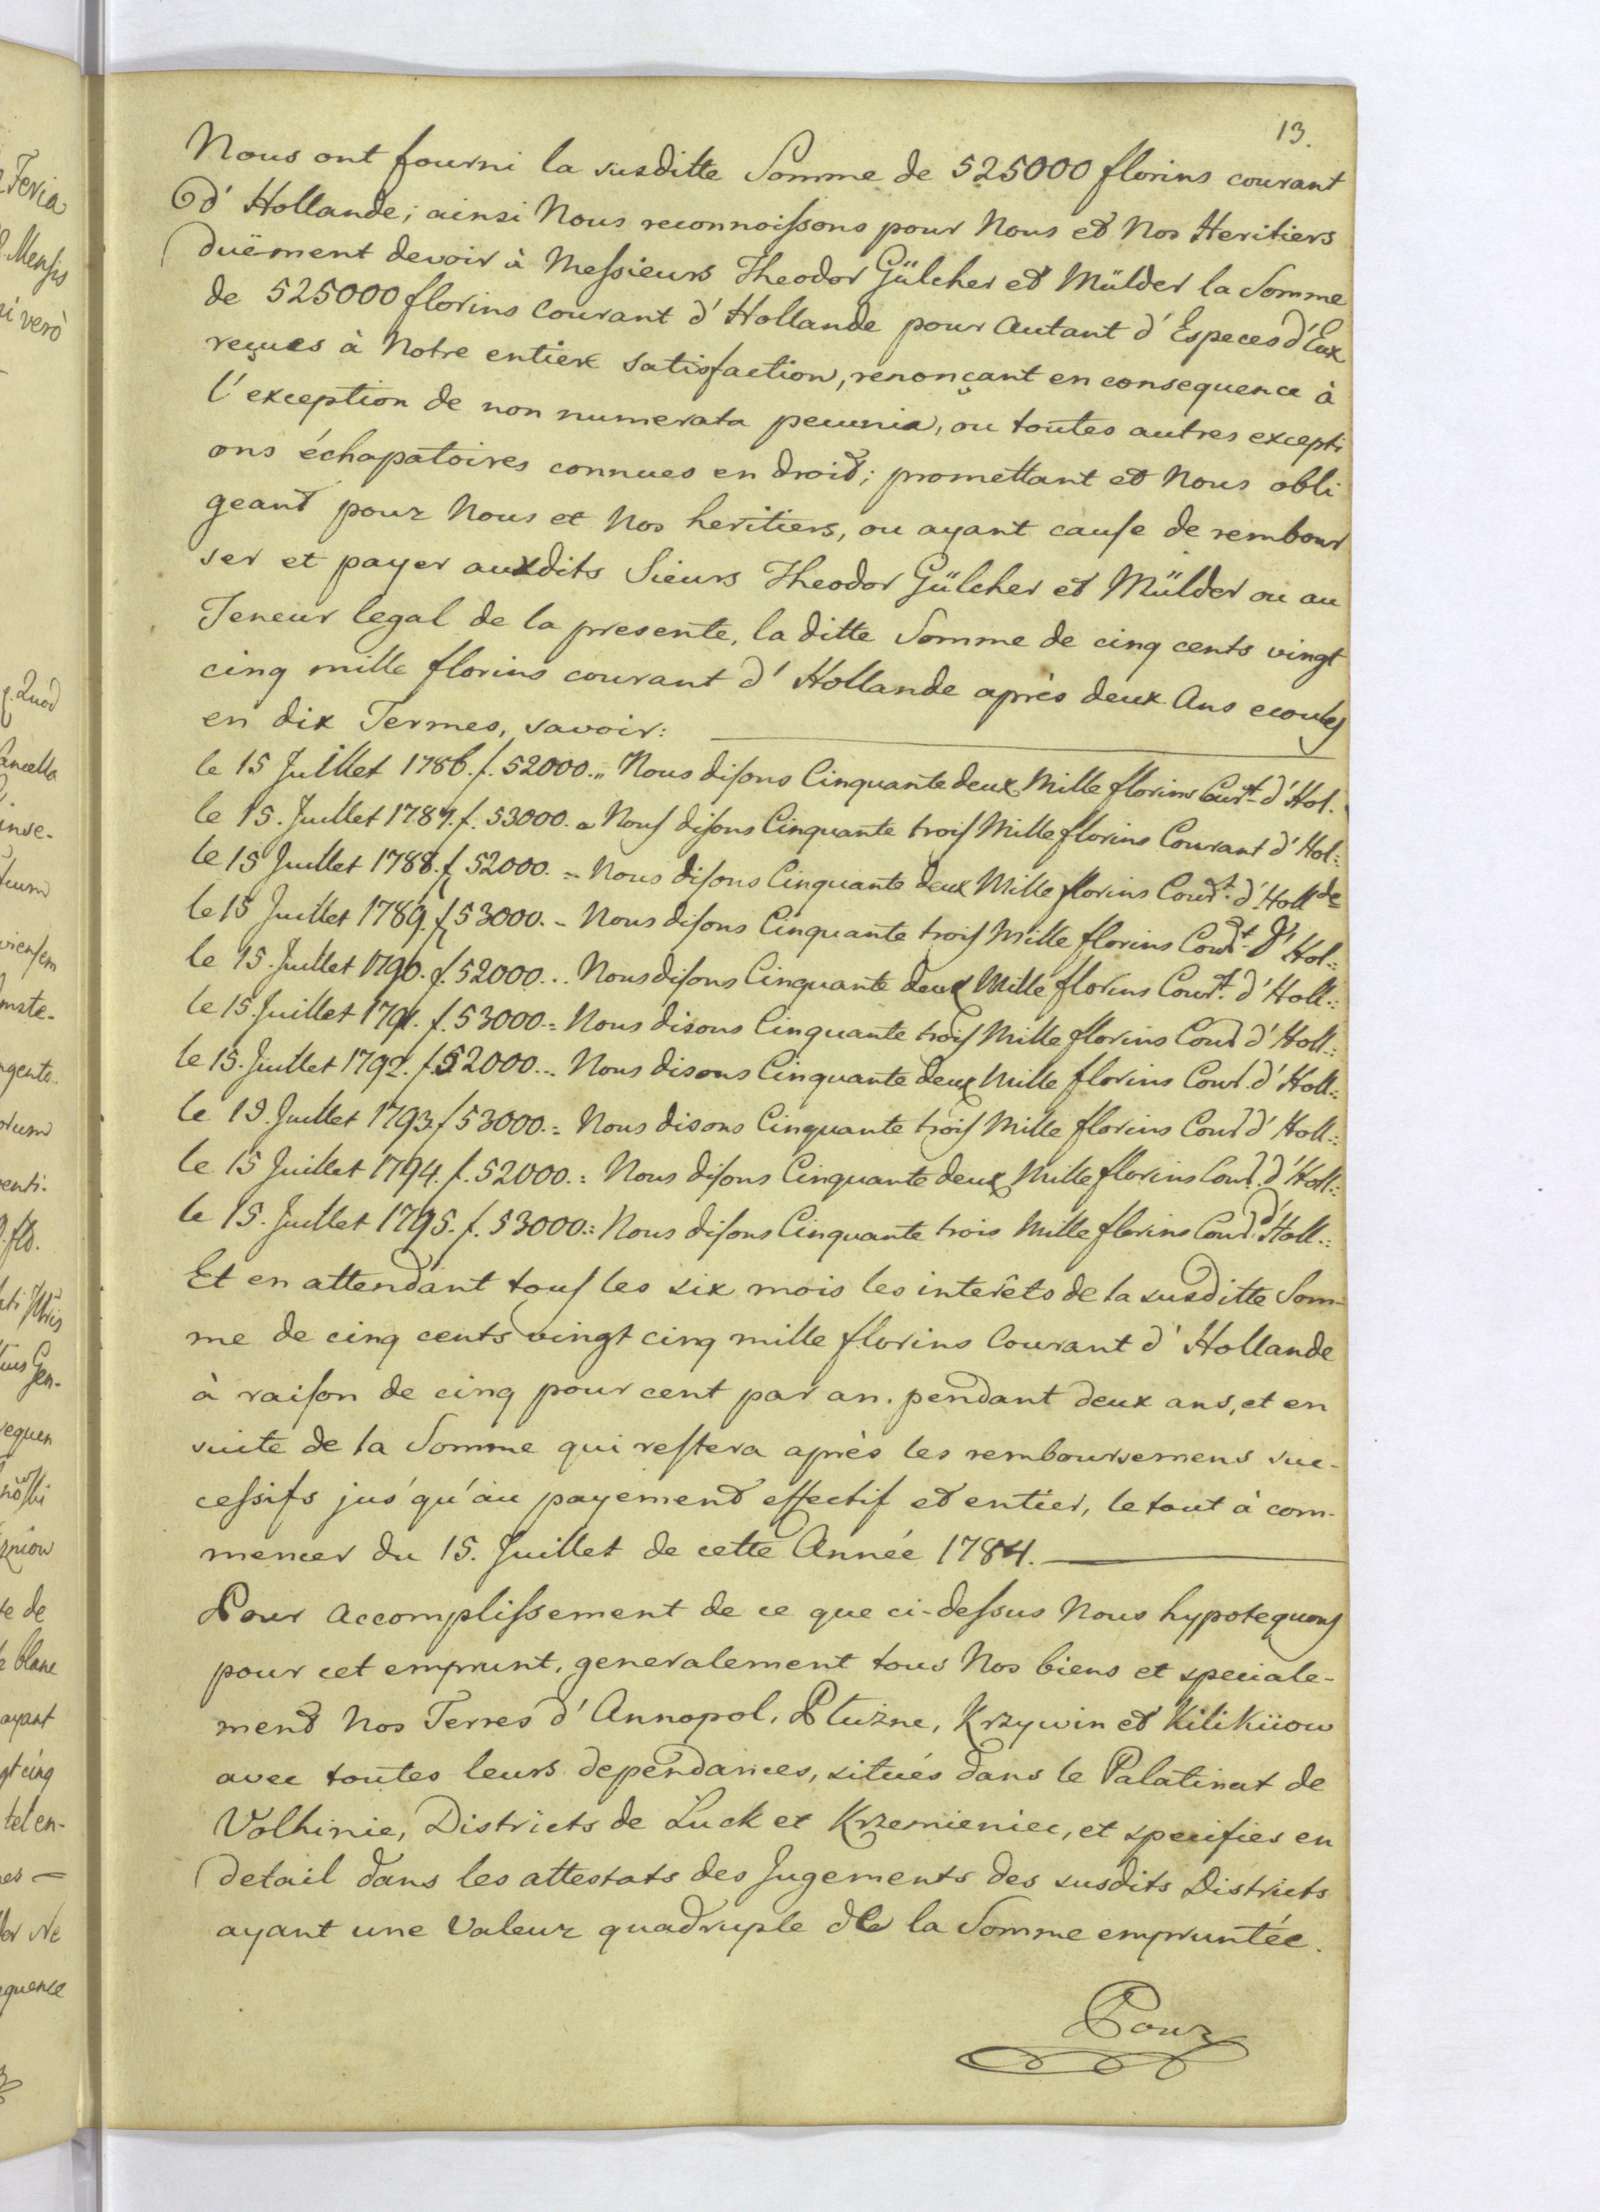 13.
Nous ont fourni la susditte Somme de 525000 florins courant
d'Hollande; ainsi Nous reconnoissons pour Nous et Nos Heritiers
duëment devoir à Messieurs Theodor Gülcher et Mülder la Somme
de 525000 florins Courant d'Hollande pour Autant d'Especes d'Eux
reçues à Notre entiere satisfaction, renonçant en consequence à
l'exception de non numerata pecunia, ou toutes autres excepti
ons échapatoires connues en droit; promettant et Nous obli
geant pour Nous et Nos heritiers, ou ayant cause de rembour
ser et payer auxdits Sieurs Theodor Gülcher et Mülder ou au
Teneur legal de la presente, la ditte Somme de cinq cents vingt
cinq mille florins courant d'Hollande après deux Ans ecoulés
en dix Termes, savoir:
le 15 Juillet 1786. f. 52000.„ Nous disons Cinquante deux Mille florins Curt. d'Hol.
le 15. Juillet 1787. f. 53000. = Nous disons Cinquante trois Mille florins Courant d'Hol:
le 15 Juillet 1788. f 52000. = Nous disons Cinquante deux Mille florins Court. d'Hollde
le 15 Juillet 1789. f 53000. - Nous disons Cinquante trois Mille florins Court. d'Hol:
le 15. Juillet 1790. f. 52000... Nous disons Cinquante deux Mille florins Court. d'Holl:
le 15. Juillet 1791. f. 53000.= Nous disons Cinquante trois Mille florins Cour d'Holl.:
le 15. Juillet 1792. f. 52000... Nous disons Cinquante deux Mille florins Cour. d'Holl.:
le 15. Juillet 1793. f 53000.= Nous disons Cinquante trois Mille florins Cour d'Holl.:
le 15 Juillet 1794. f. 52000.: Nous disons Cinquante deux Mille florins Cour. d'Holl.:
le 15. Juillet 1795. f. 53000.: Nous disons Cinquante trois Mille florins Cour. d'Holl.:
Et en attendant tous les six mois les interêts de la susditte Som-
me de cinq cents vingt cinq mille florins Courant d'Hollande
à raison de cinq pour cent par an. pendant deux ans, et en
suite de la Somme qui restera après les remboursemens suc-
cessifs jus'qu'au payement effectif et entier, le tout à com-
mencer du 15. Juillet de cette Année 1784.
Pour Accomplissement de ce que ci-dessus Nous hypotequons
pour cet emprunt, generalement tous Nos biens et speciale-
ment Nos Terres d'Annopol, Pluzne, Krzywin et Kilikiiow
avec toutes leurs dependances, situés dans le Palatinat de
Volhinie, Districts de Luck et Krzemieniec, et specifies en
detail dans les attestats des Jugements des susdits Districts
ayant une Valeur quadruple de la Somme empruntée.
Pour